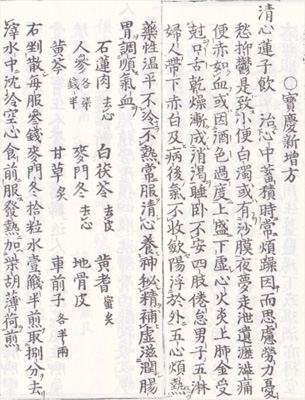 ○寶慶新增方
清心蓮子飲　治心中蓄積時常煩躁因而思慮勞力憂
愁抑鬱是致小便白濁或有沙膜夜夢走泄遺瀝澁痛
便赤如血或因酒色過度上盛下虛心火炎上肺金受
尅口舌乾燥漸成消渴睡卧不安四肢倦怠男子五淋
婦人帶下赤白及病後氣不收斂陽浮於外五心煩熱
藥性溫平不冷不熱常服清心養神秘精補虛滋潤腸
胃調順氣血
石蓮肉去心　白茯苓去皮　黃耆蜜炙
人參各柒錢半　麥門冬去心　地骨皮
黃芩　甘草炙　車前子各半兩
右剉散每服叁錢麥門冬拾粒水壹盞半煎取捌分去
滓水中沈冷空心食前服發熱加柴胡薄荷煎